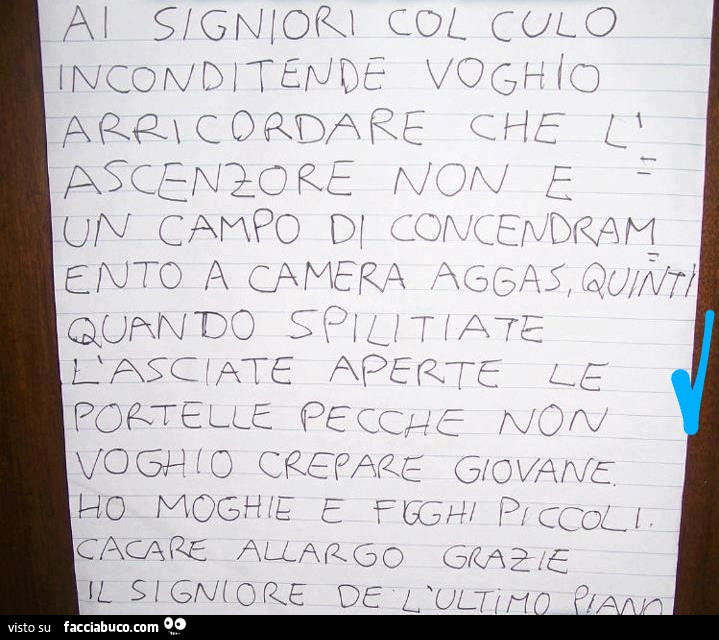 AI SIGNIORI COL CULO
INCONDITENDE VOGHIO
ARRICORDARE CHE L'
ASCENZORE NON E
UN CAMPO DI CONCENDRAM=
ENTO A CAMERA AGGAS, QUINTI
QUANDO SPILITIATE
L'ASCIATE APERTE LE
PORTELLE PECCHE NON
VOGHIO CREPARE GIOVANE.
HO MOGHIE E FIGGHI PICCOLI.
CACARE ALLARGO GRAZIE
IL SIGNIORE DE L'ULTIMO PIANO
visto su facciabuco.com